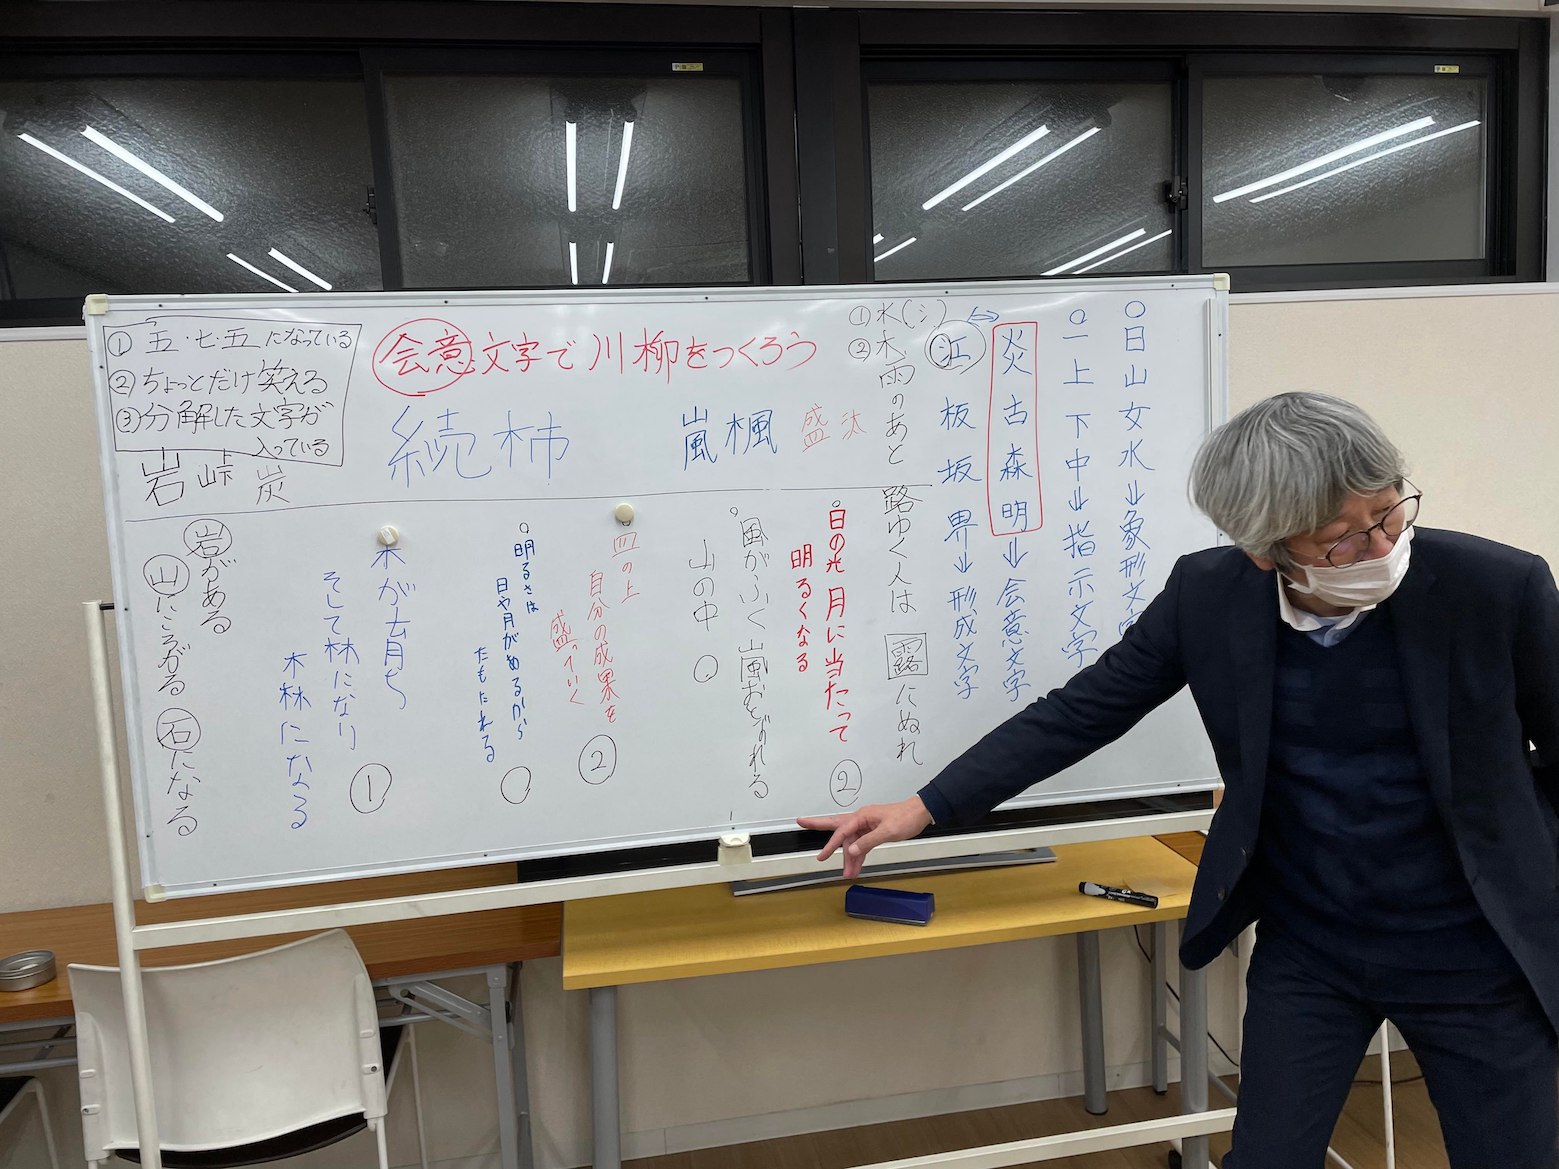 ① 五・七・五になっている
② ちょっとだけ笑える
③ 分解した文字が
入っている
会意文字で川柳をつくろう
岩 峠 炭
続 柿
嵐 楓
盛 汰
① 水(シ)
② 木
○日山女水⇓象形文字
○一上下中⇓指示文字
炎古森明⇓会意文字
江板坂界⇓形成文字
雨のあと 路ゆく人は 露にぬれ
○日の光 月に当たって
明るくなる
②
○風がふく 嵐おとずれる
山の中
皿の上
自分の成果を
盛っていく
②
○明るさは
日や月があるから
たもたれる
木が育ち
そして林になり
木林になる
①
岩がある
山にころがる 石になる